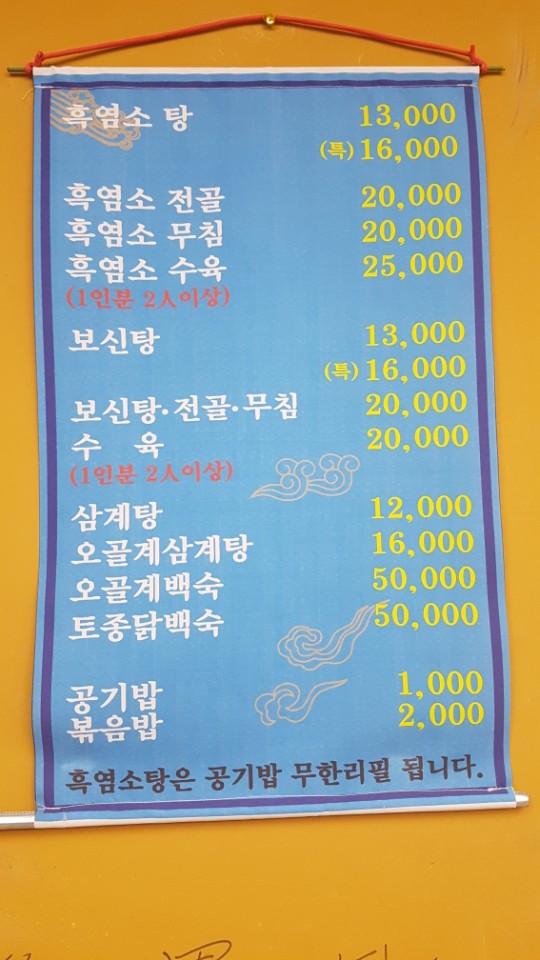 흑염소 탕 13,000
(특) 16,000
흑염소 전골 20,000
흑염소 무침 20,000
흑염소 수육 25,000
(1인분 2人이상)
보신탕 13,000
(특) 16,000
보신탕·전골·무침 20,000
수 육 20,000
(1인분 2人이상)
삼계탕 12,000
오골계삼계탕 16,000
오골계백숙 50,000
토종닭백숙 50,000
공기밥 1,000
볶음밥 2,000
흑염소탕은 공기밥 무한리필 됩니다.